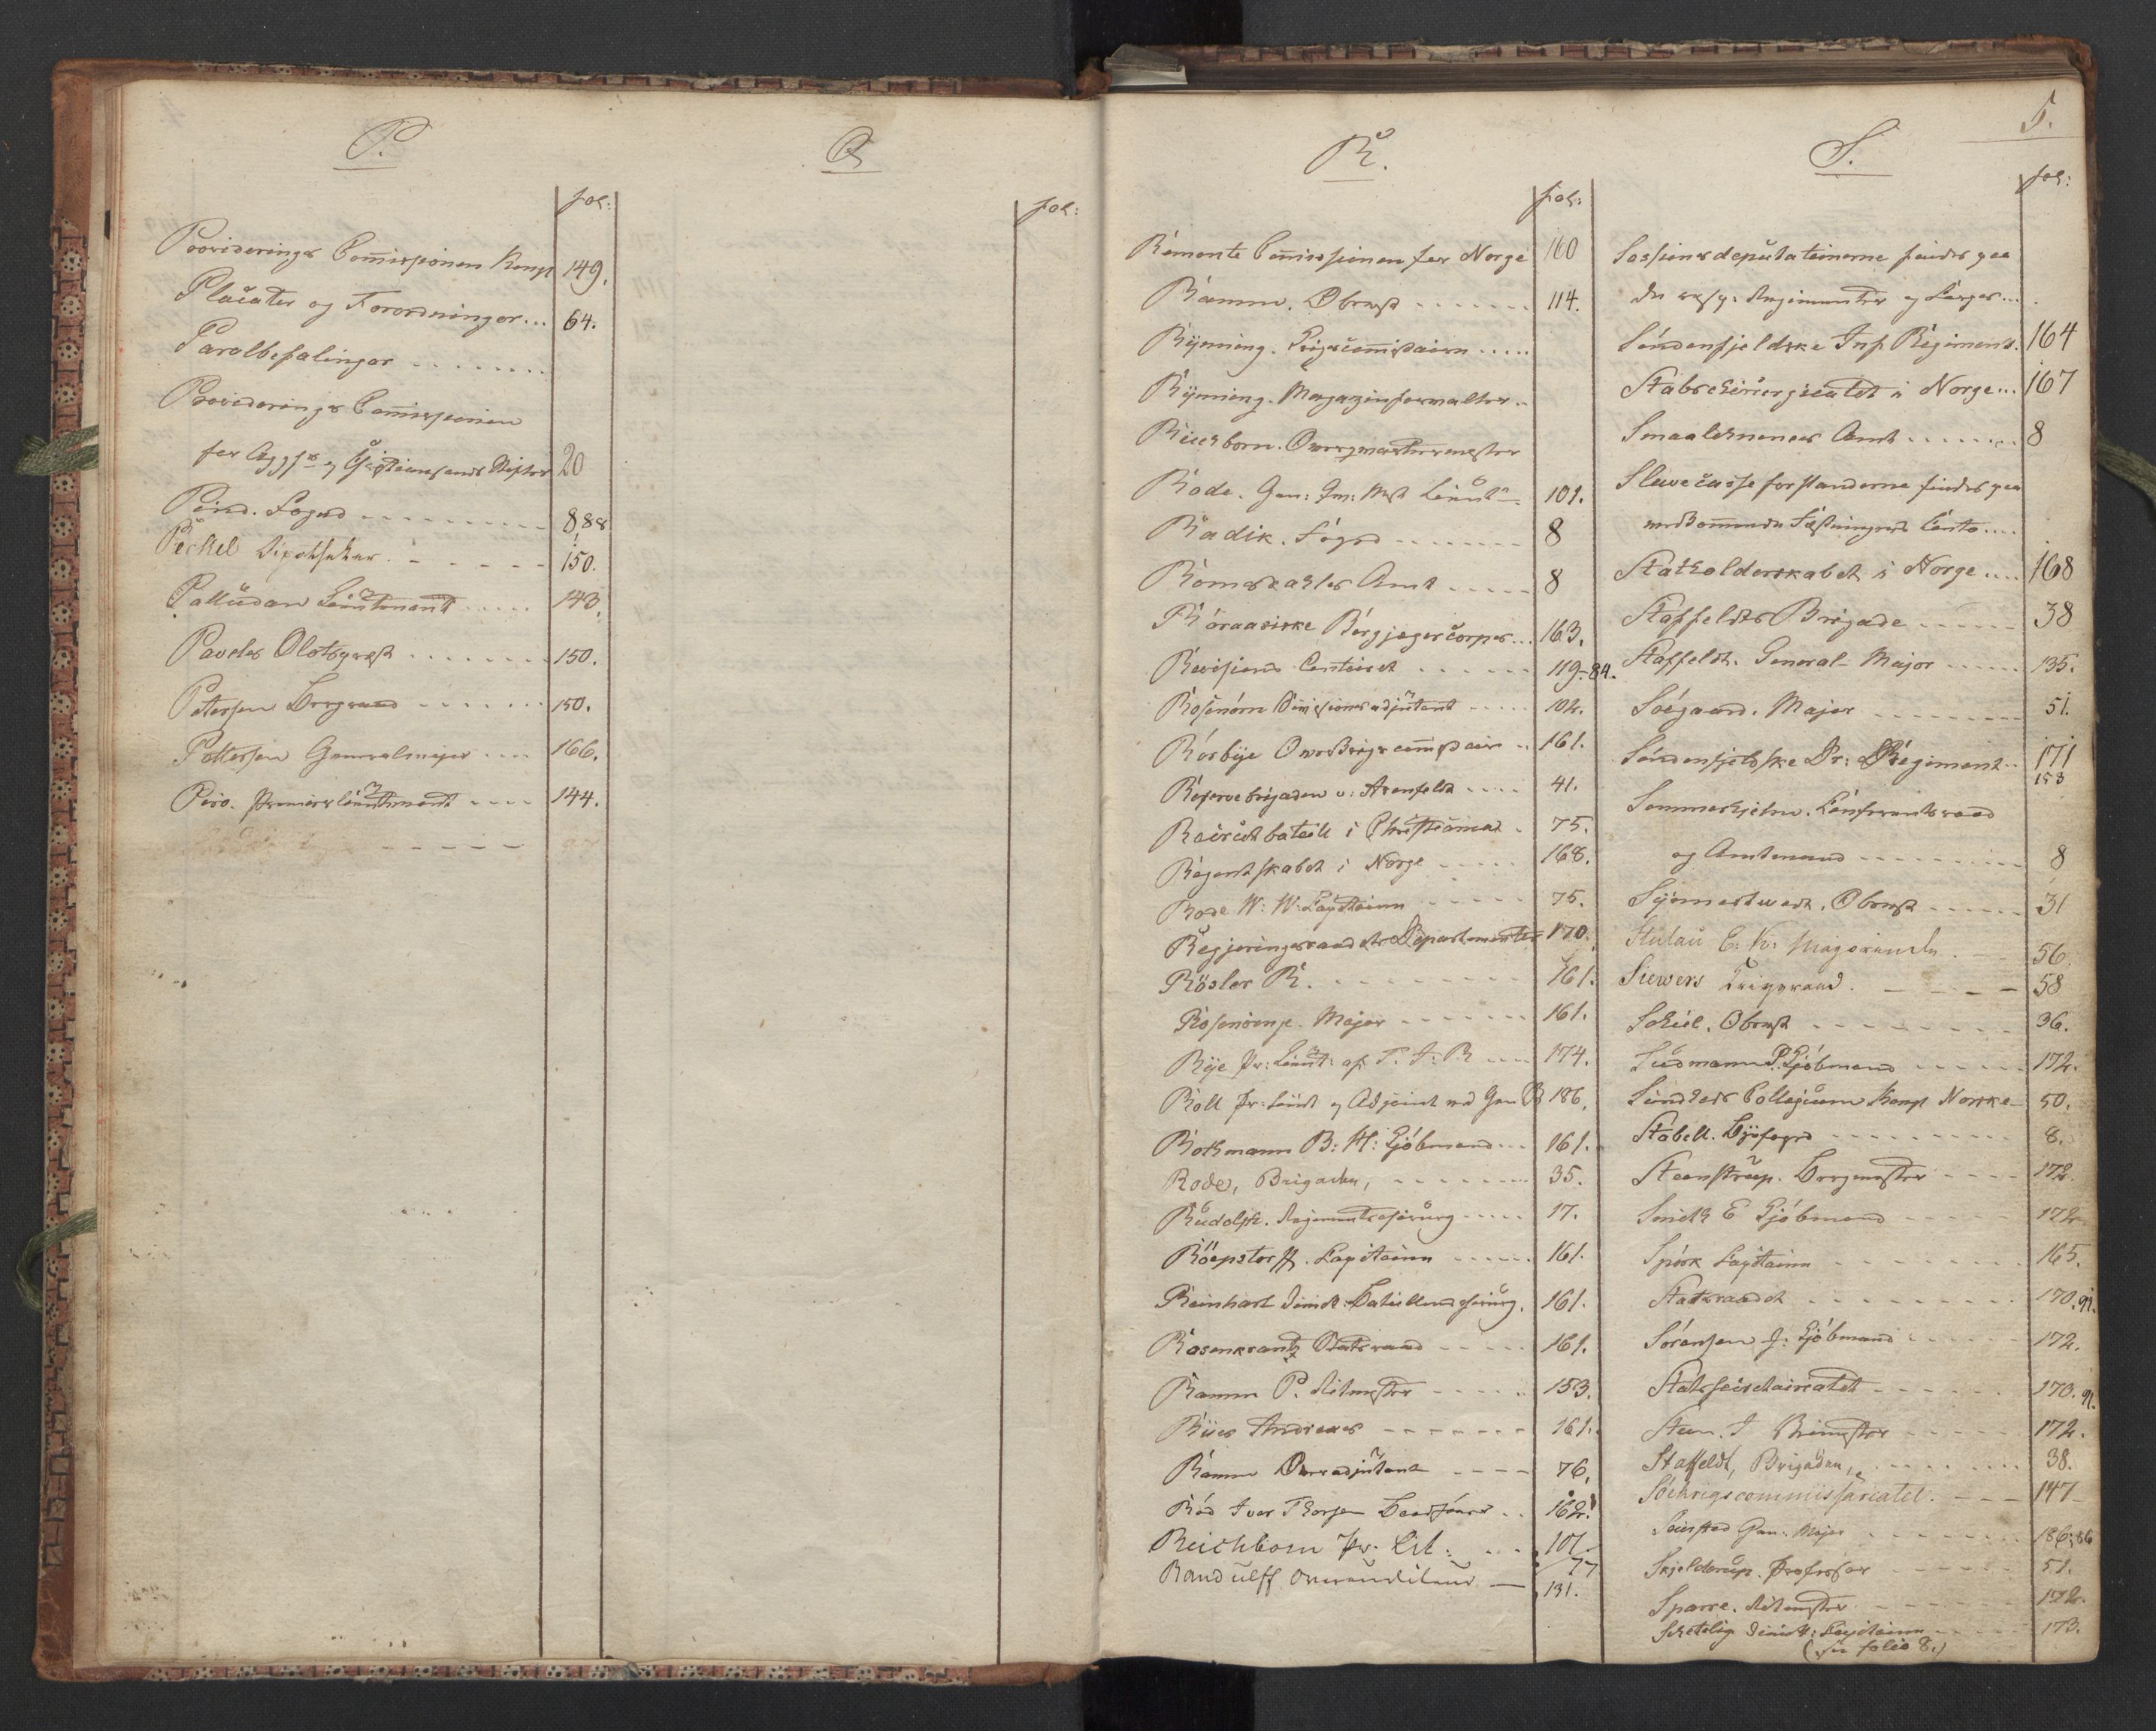 P.
fol:
Provideringe Commissionen Kongl 149.
Placater og Forordninger... 64.
Parolbefalinger
Providerings Commissionen
for Agg og Christiansands Stifter 20
Pind. Foged 8, 88
Peckel Apotheker 150.
Palludan Lieutenant 143.
Pavels Slotspræst 150.
Petersen Borgraad 150.
Pettersen Generalmajor 166.
Piro. Premierlieutenant 144.
Q
fol:
R.
fol:
Remonte Commissionen for Norge 160
Ramm. Oberst 114.
Rynning. Krigscommissair
Rynning. Magazinforvalter
Reichborn. Overqvarteermester
Rode. Gen: Qu: Mst Lieut 101.
Radik. Foged 8
Romsdahls Amt 8
Röraasiske Bergjægercorps... 163.
Revisions Contoiret 119-84.
Rosenörn Divisionsadjutant 102.
Rörbye OverKrigscommissair 161.
Reservebrigaden v: Arenfeldt 41.
Recrutbataill i Christiania 75.
Regentskabet i Norge 168.
Rode W: W: Capitainn 75.
Regjeringsraadets Departementer 170.
Rösler R. 161.
Rosenörn. Major 161.
Rye Pr: Lieut: af T. I: R 174.
Roll Pr: Lieut og Adjoint ved Gen 186.
Rothmann B: H: Kjöbmand 161.
Rode, Brigaden, 35.
Rudolph. Regimentschirurg 17.
Röepstorff. Capitainn 161.
Reinhart Bataillonschirurg. 161.
Rosenkrantz Statsraad 161.
Ramm P. Ritmester 153.
Ries Andreas 161.
Ramm Overadjutant 76.
Röd Iver Thorsen 162.
Reichborn Pr. Lit: 107. 77
Randulff Overauditeur 131.
5.
S.
fol:
Sessionsdeputationerne findes paa
de resp: Regimenter og Corpser...
Söndenfjeldske Inf Regiment. 164
Stabschirurgicatet i Norge... 167
Smaalehnenes Amt 8
Slevecasseforstanderne findes paa
vedkommende Fæstningers Conto...
Statholderskabet i Norge 168
Staffeldts Brigade 38
Staffeldt. General-Major 135.
Söegaard. Major 51.
Söndenfjeldske Dr: Regiment 171
153
Sommerhjelm. Conferentsraad
og Amtmand 8
Synnestvedt. Oberst 31
56.
Siewers Krigsraad. 58
Scheel. Oberst 36.
Südmann P. Kjöbmand 172.
Sundheds Collegium Kongl Norske 50.
Stabell. Byefoged 8.
Steenstrup. Bergmester 172.
Smith E Kjöbmand 172
Spörk Capitainn 165.
Statsraadet 170. 91.
Sörensen J: Kjöbmand 172.
Statssecretairiatet 170. 91.
Steen. J 172.
Staffeldt, Brigaden, 38.
Söekrigscommissariatet. 147
Seiersted Gen: Major 186; 86
Skjelderup. Professor 51.
Sparre. Ritmester 172.
Schetelig Capitainn 173.
(see folio 8.)